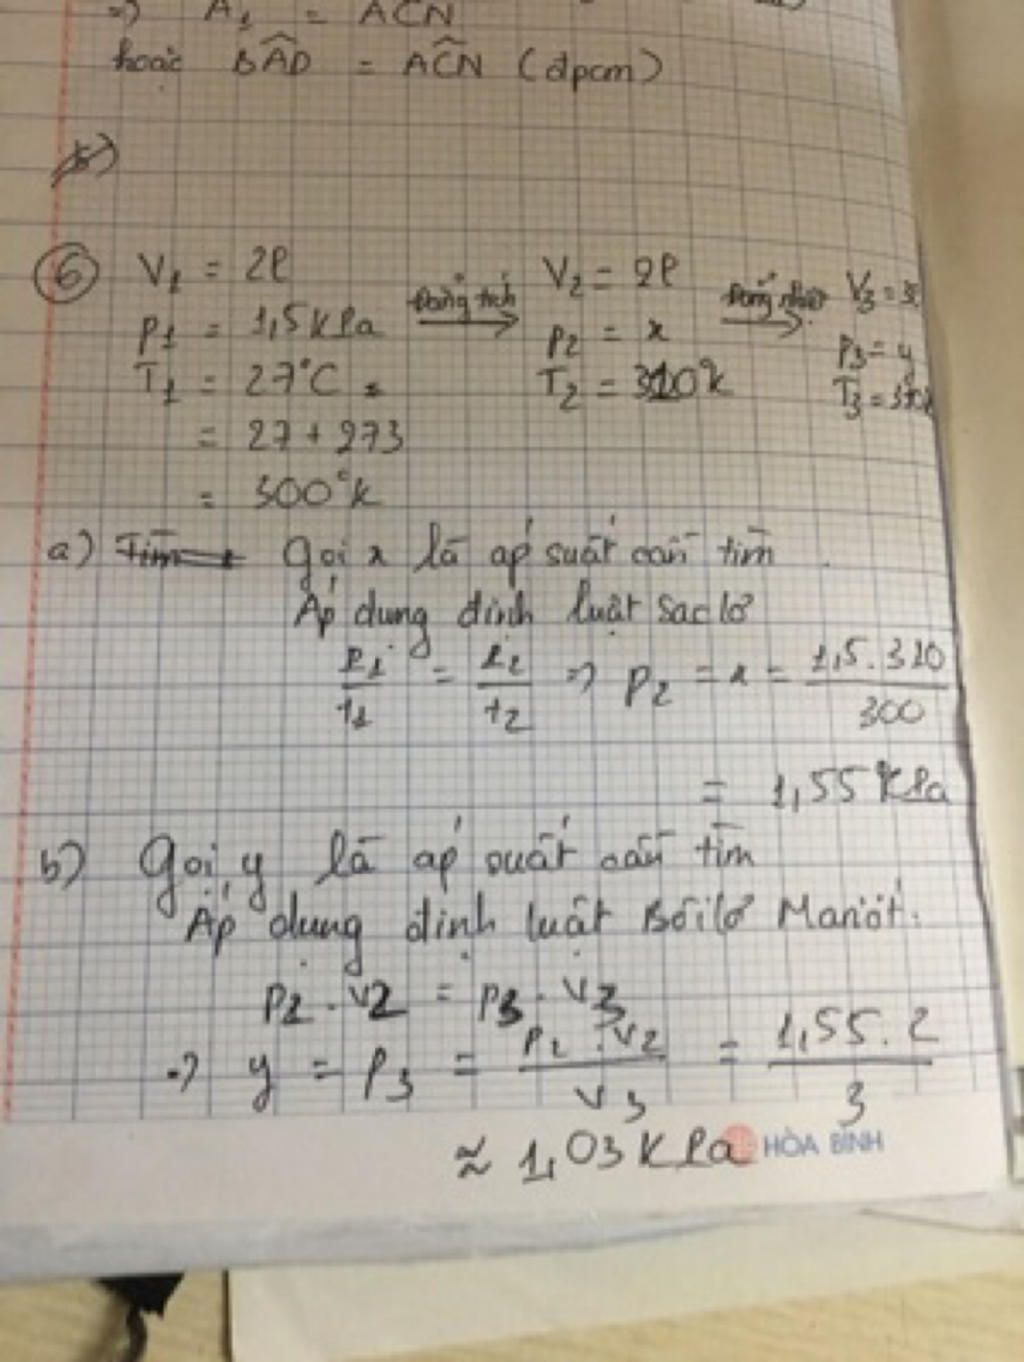 => A₁ = ACN
hoặc BÂD = AĈN (đpcm)
6 V₁ = 2l
P₁ = 1,5 kPa
T₁ = 27°C =
= 27 + 273
= 300°K
Đẳng tích
V₂ = 2l
P₂ = x
T₂ = 310°k
Đẳng nhiệt
V₃ = 3l
P₃ = y
T₃ = 310k
a) Gọi x là áp suất cần tìm
Áp dụng định luật Saclơ
P₁/t₁ = P₂/t₂ => P₂ = x = 1,5.310/300
= 1,55 kPa
b) Gọi y là áp suất cần tìm
Áp dụng định luật Bôilơ Mariốt:
P₂ . V₂ = P₃ . V₃
=> y = P₃ = P₂ . V₂/V₃ = 1,55.2/3
≈ 1,03 kPa
HÒA BÌNH